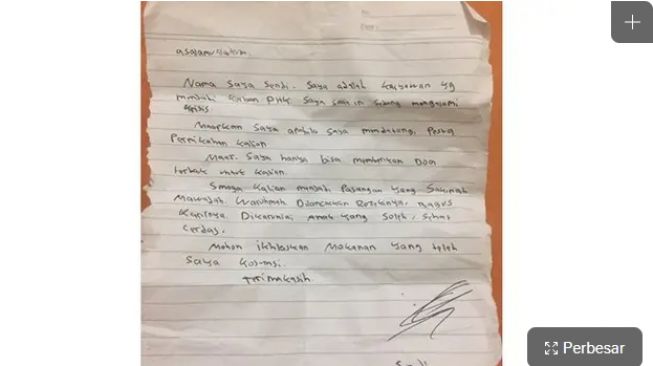 asalamualaikum.
Nama Saya Sendi. Saya adalah karyawan yg
menjadi korban PHK. Saya saat in sedang mengalami
krisis
Maafkan Saya apabila saya mendatangi Pesta
Pernikahan kalian
Maaf. Saya hanya bisa memberikan Doa
terbaik untuk kalian.
Semoga Kalian menjadi Pasangan Yang Sakinah
Mawadah. Warohmah Dilancarkan Rezekinya. Bagus
Karirnya. Dikaruniai Anak Yang Soleh. Sehat
Cerdas.
Mohon ikhlaskan Makanan Yang telah
Saya konsumsi.
Terimakasih.
Perbesar